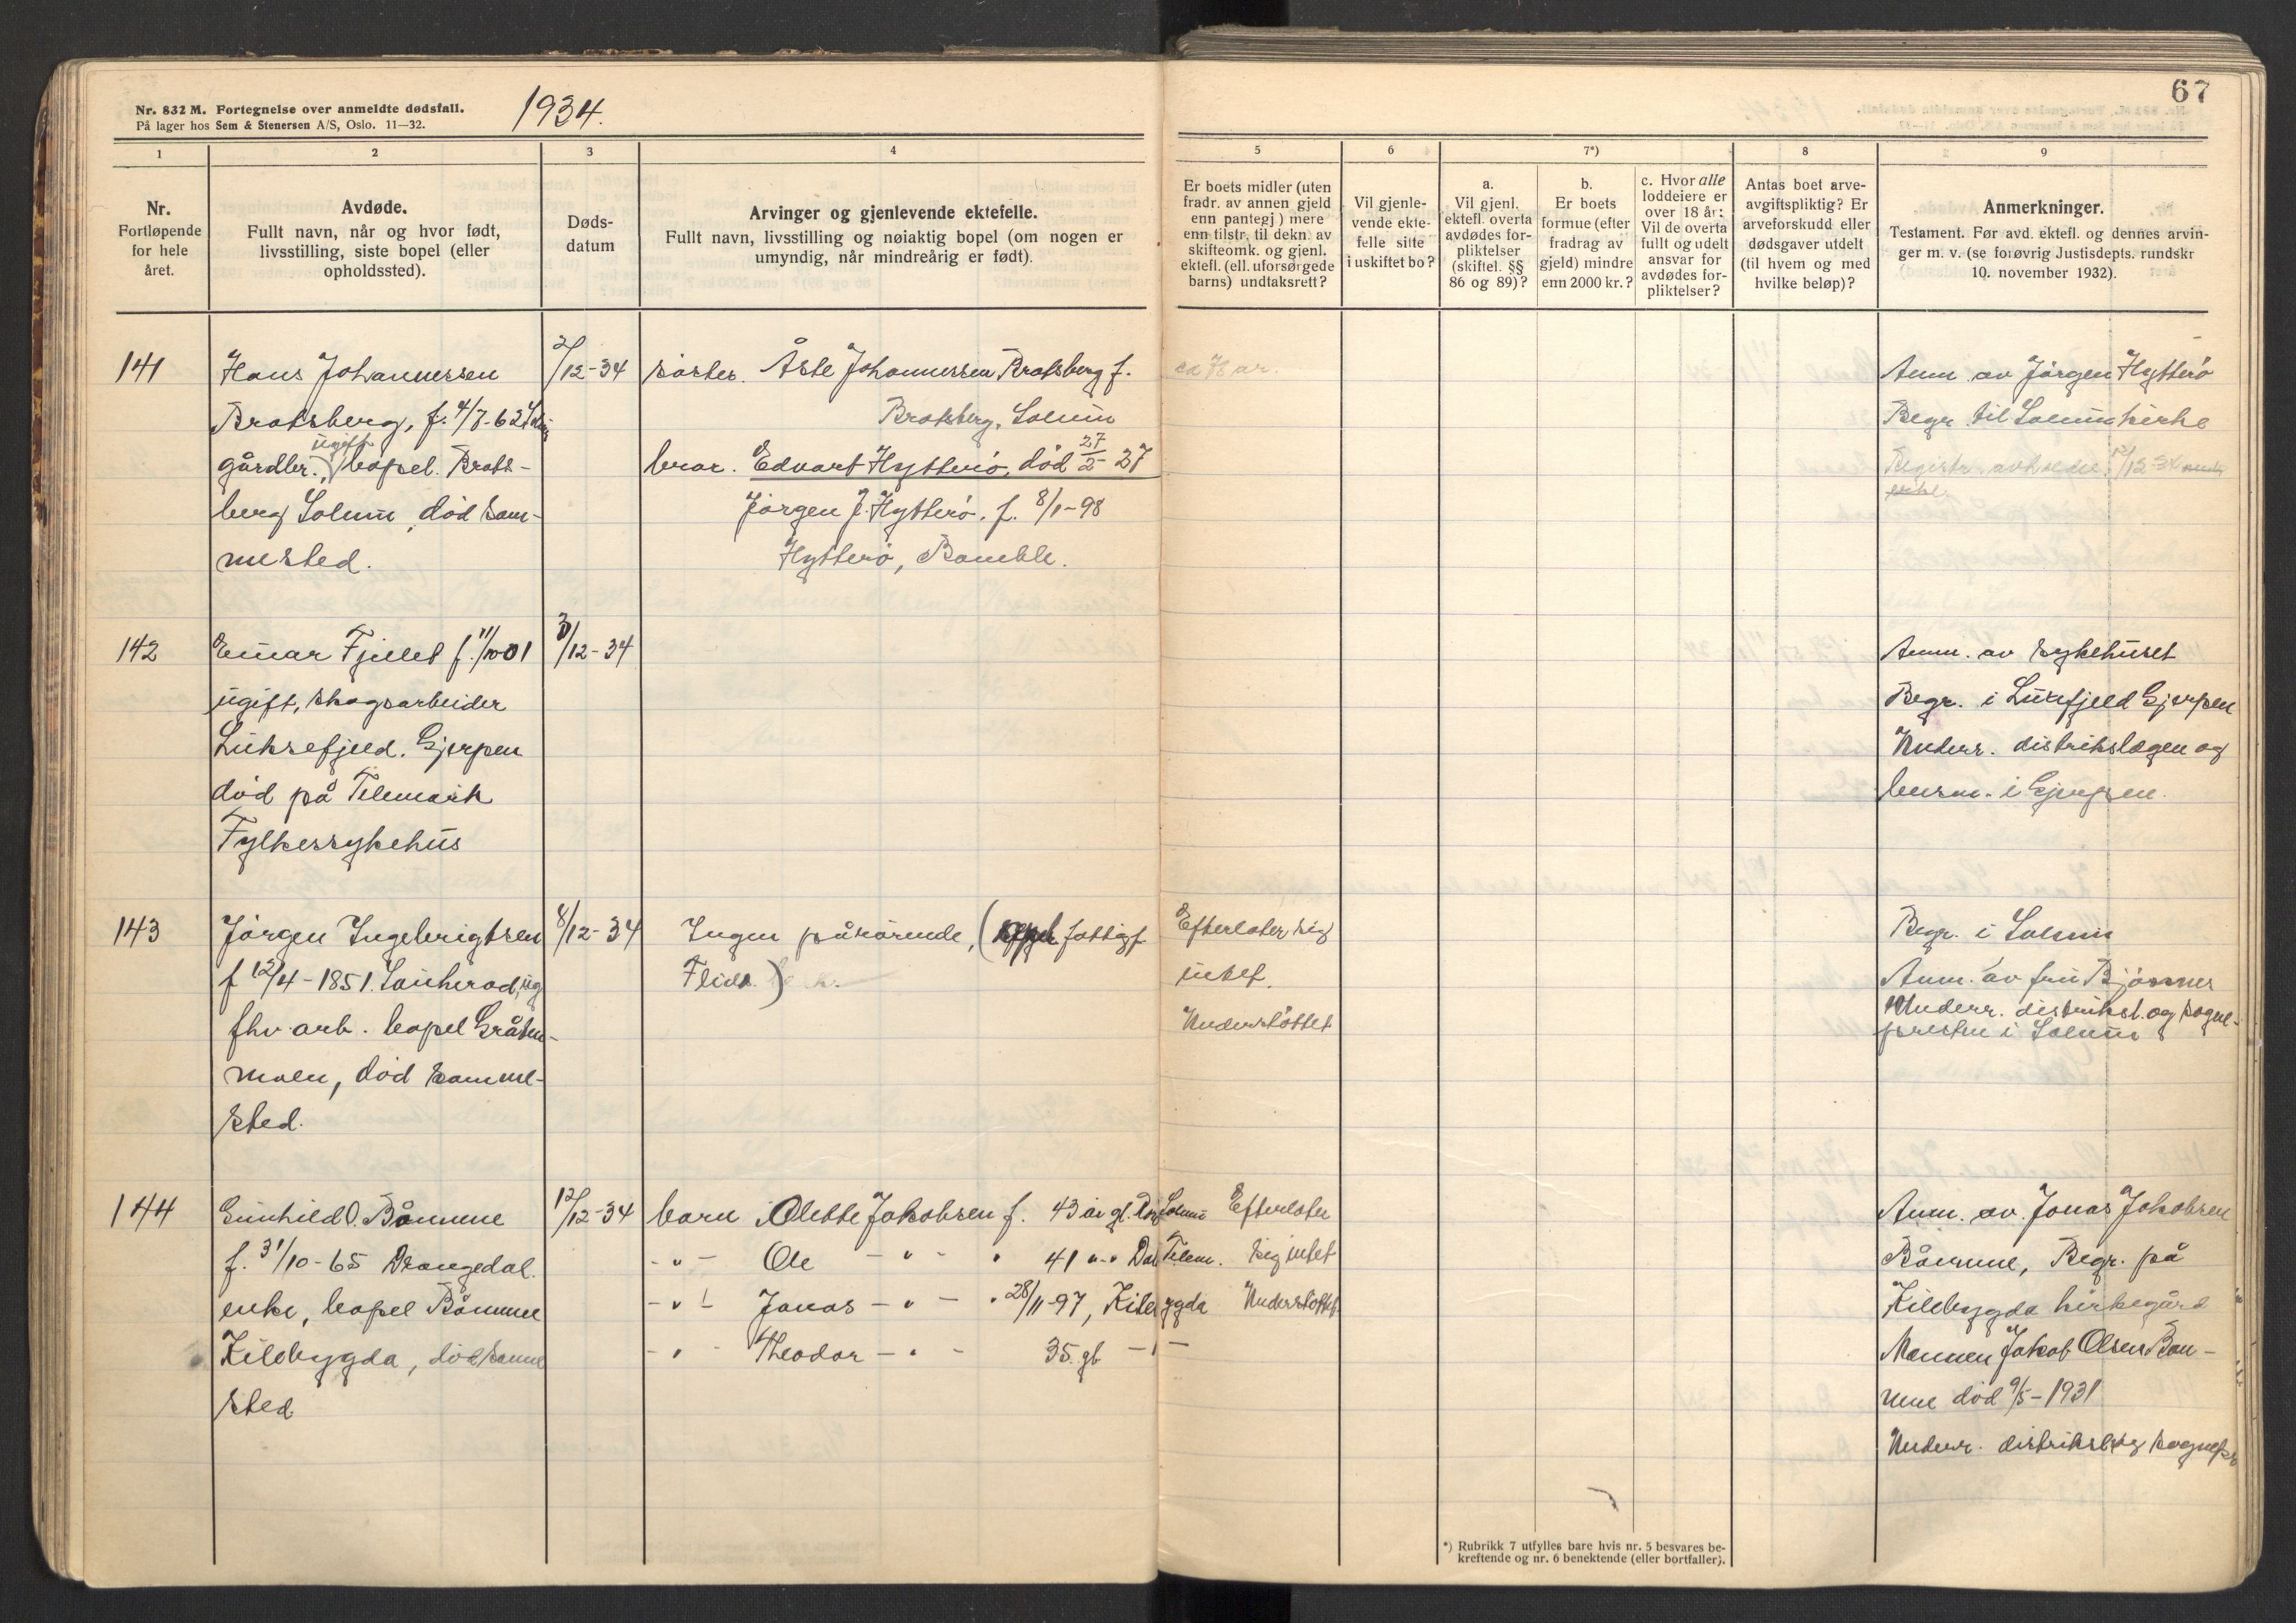 Nr. 832 M. Fortegnelse over anmeldte dødsfall.
På lager hos Sem & Stenersen A/S, Oslo. 11—32.
1934.
67
1 2 3 4 5 6 7*) 8 9
Nr.
Fortløpende
for hele
året.
Avdøde.
Fullt navn, når og hvor født,
livsstilling, siste bopel (eller
opholdssted).
Døds-
datum
Arvinger og gjenlevende ektefelle.
Fullt navn, livsstilling og nøiaktig bopel (om nogen er
umyndig, når mindreårig er født).
Er boets midler (uten
fradr. av annen gjeld
enn pantegj) mere
enn tilstr. til dekn. av
skifteomk. og gjenl.
ektefl. (ell. uforsørgede
barns) undtaksrett?
Vil gjenle-
vende ekte-
felle sitte
i uskiftet bo?
a.
Vil gjenl.
ektefl. overta
avdødes for-
pliktelser
(skiftel. §§
86 og 89)?
b.
Er boets
formue (efter
fradrag av
gjeld) mindre
enn 2000 kr.?
c. Hvor alle
loddeiere er
over 18 år:
Vil de overta
fullt og udelt
ansvar for
avdødes for-
pliktelser?
Antas boet arve-
avgiftspliktig? Er
arveforskudd eller
dødsgaver utdelt
(til hvem og med
hvilke beløp)?
Anmerkninger.
Testament. Før avd. ektefl. og dennes arvin-
ger m. v. (se forøvrig Justisdepts. rundskr
10. november 1932).
141
Hans Johannessen
Bratsberg, f. 4/7-62
gårdbr. ugift bopel. Brats-
berg Solum, død sam-
mested.
2/12-34
søster. Åste Johannessen Bratsberg f.
Bratsberg, Solum
bror. Edvart Hytterø, død 27/2-27
Jørgen J. Hytterø, f. 8/1-98
Hytterø, Bamble.
Anm av Jørgen Hytterø
Begr. til Solum kirke
142
Einar Fjellet f. 11/10-01
ugift, skogsarbeider
Luksefjeld. Gjerpen
død på Telemark
Fylkessykehus
3/12-34
Anm. av sykehuset
Begr. i Luksefjeld Gjerpen
Underr. distriktslægen og
lensm. i Gjerpen.
143
Jørgen Ingebrigtsen
f 12/4-1851. Sauherad, ug
fhv. arb. bopel Gråten-
moen, død samme-
sted.
8/12-34
Ingen pårørende, ( fattigf
Flids.)
Efterlater sig
intet.
Understøttet
Begr. i Solum
Anm. av fru Bjønnes
Underr. distriktsl. og sogne-
presten i Solum
144
Gunhild O. Bånnne
f. 31/10-65 Drangedal.
enke, bopel Bånnne
Kilebygda, død samme
sted
12/12-34
barn Olette Jakobsen f. 43 år gl. Solum
-"- Ole - " - " 41 "-" Dal Telem.
-"- Jonas - " - " 28/11-97, Kilebygda
-"- Theodor - " - 35. gl - " -
Efterlater
sig intet
Understøttet
Anm. av. Jonas Jakobsen
Bånnne, Begr. på
Kilebygda kirkegård
Mannen Jakob Olsen Bån-
nne død 9/5-1931
Underr. distriktsl og sognepr
*) Rubrikk 7 utfylles bare hvis nr. 5 besvares be-
kreftende og nr. 6 benektende (eller bortfaller).